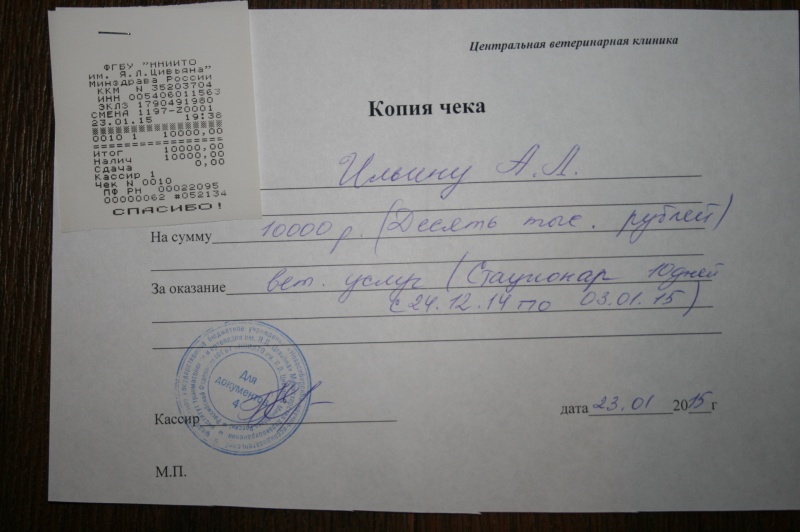 ФГБУ "ННИИТО
им. Я.Л.Цивьяна"
Минздрава России
ККМ N 35203704
ИНН 005406011563
ЭКЛЗ 1790491980
СМЕНА 1197-Z0001
23.01.15 19:38
0010 1 10000,00
Итог 10000,00
Налич 10000,00
Сдача 0,00
Кассир 1
Чек N 0010
ПФ РН 00022095
00000062 #052134
СПАСИБО!
Центральная ветеринарная клиника
Копия чека
Ильину А.Л.
На сумму 10000 р. (Десять тыс. рублей)
За оказание вет. услуг (Стационар 10дней
с 24.12.14 по 03.01.15)
Для
документов
4
Кассир
дата 23.01 2015г
М.П.